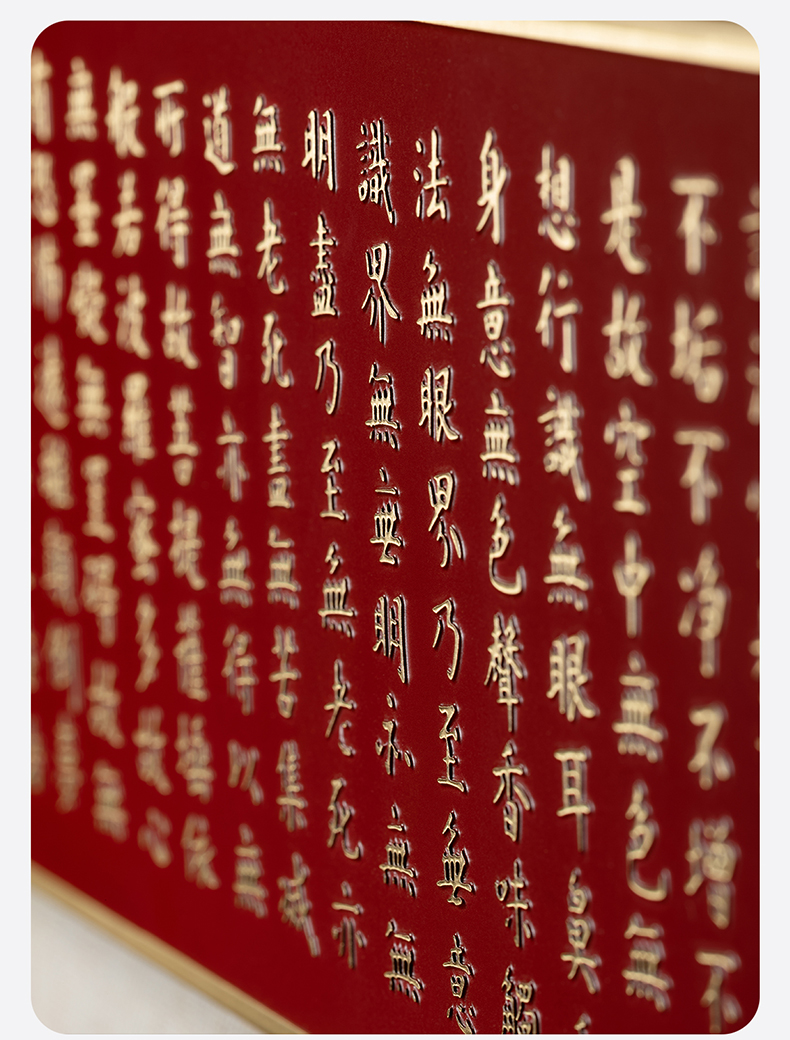 不垢不净不增不
是故空中無色無
想行識無眼耳鼻
身意無色聲香味觸
法無眼界乃至無意
識界無無明亦無無
明盡乃至無老死亦
無老死盡無苦集滅
道無智亦無得以無
所得故菩提薩埵依
般若波羅蜜多故心
無罣礙無罣礙故無
有恐怖遠離顛倒夢